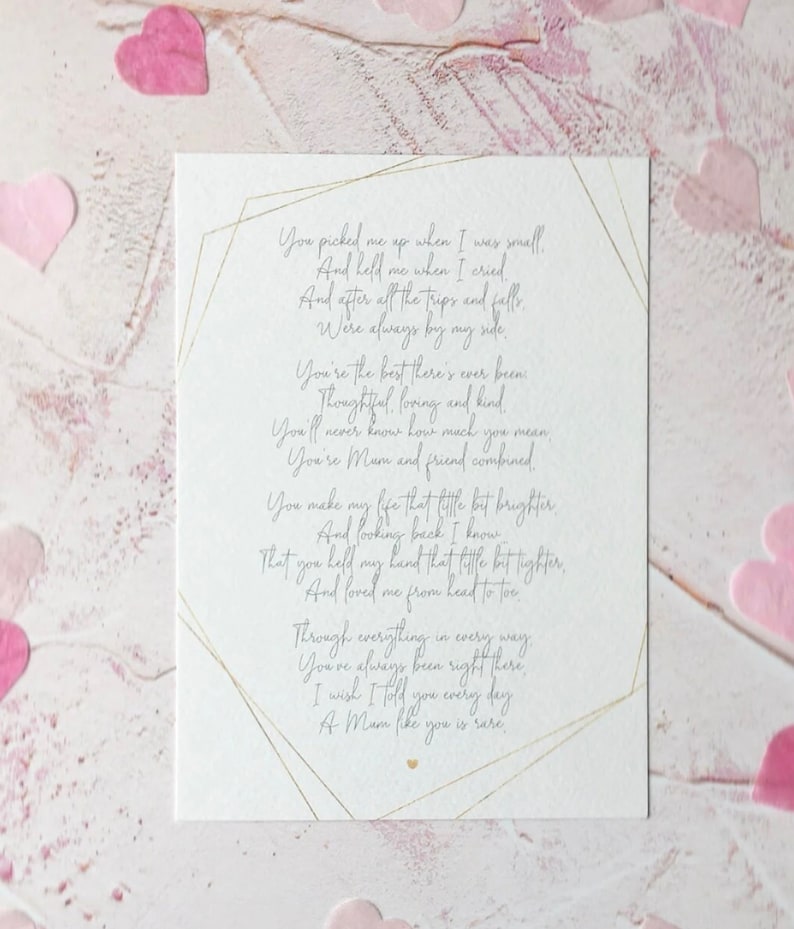 You picked me up when I was small,
And held me when I cried.
And after all the trips and falls,
Were always by my side.
You're the best there's ever been;
Thoughtful, loving and kind.
You'll never know how much you mean,
You're Mum and friend combined.
You make my life that little bit brighter,
And looking back I know...
That you held my hand that little bit tighter,
And loved me from head to toe.
Through everything in every way,
You've always been right there,
I wish I told you every day
A Mum like you is rare.